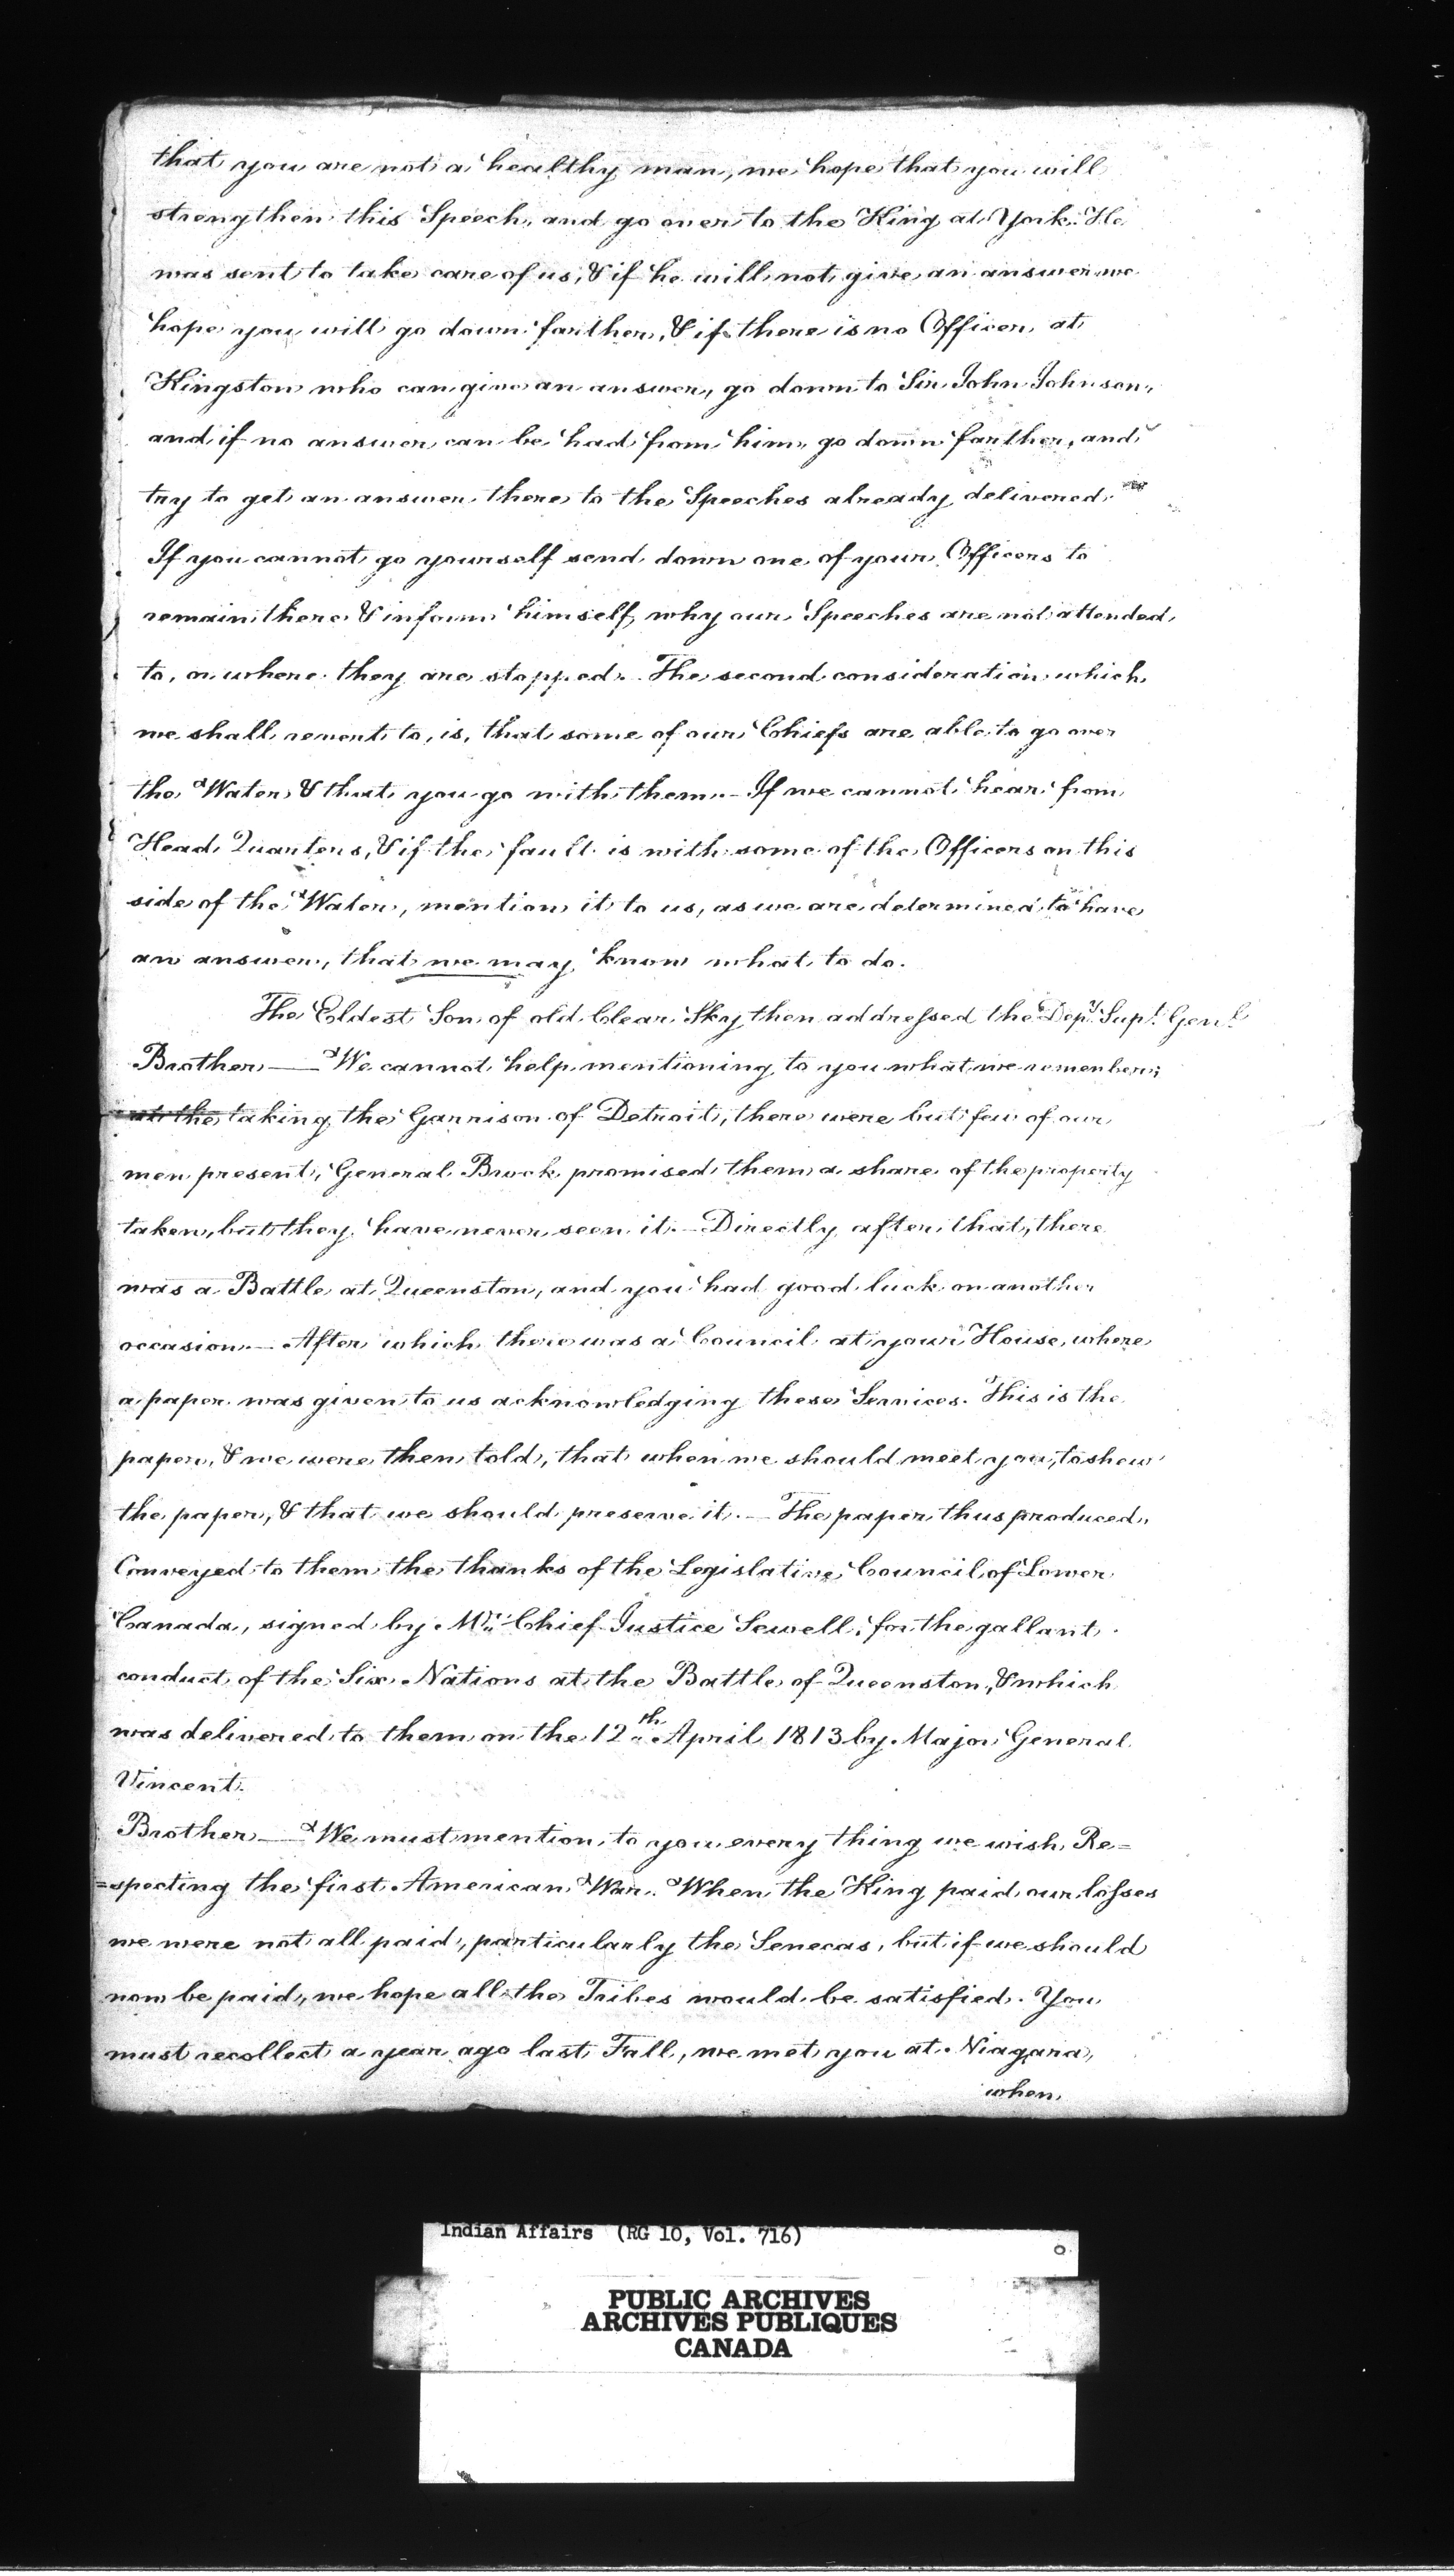 that you are not a healthy man, we hope that you will
strengthen this Speech, and go over to the King at York. He
was sent to take care of us, & if he will not give an answer we
hope you will go down farther, & if there is no Officer at
Kingston who can give an answer, go down to Sir John Johnson,
and if no answer can be had from him, go down farther, and
try to get an answer there to the Speeches already delivered.
If you cannot go yourself send down one of your Officers to
remain there & inform himself why our Speeches are not attended
to, or where they are stopped. The second consideration which
we shall revert to, is, that some of our Chiefs are able to go over
the Water, & that you go with them. - If we cannot hear from
Head Quarters, & if the fault is with some of the Officers on this
side of the Water, mention it to us, as we are determined to have
an answer, that we may know what to do.
The Eldest Son of old Clear Sky then addressed the Depy. Supt. Genl.
Brother — We cannot help mentioning to you what we remember;
at the taking the Garrison of Detroit, there were but few of our
men present, General Brock promised them a share of the property
taken, but they have never seen it. - Directly after that, there
was a Battle at Queenston, and you had good luck on another
occasion. - After which there was a Council at your House, where
a paper was given to us acknowledging these Services. This is the
paper, & we were then told, that when we should meet you, to shew
the paper, & that we should preserve it. - The paper thus produced,
Conveyed to them the thanks of the Legislative Council of Lower
Canada, signed by Mr. Chief Justice Sewell, for the gallant
conduct of the Six Nations at the Battle of Queenston, & which
was delivered to them on the 12th April 1813 by Major General
Vincent.
Brother — We must mention to you every thing we wish Re=
=specting the first American War. When the King paid our losses
we were not all paid, particularly the Senecas, but if we should
now be paid, we hope all the Tribes would be satisfied. You
must recollect a year ago last Fall, we met you at Niagara,
when
Indian Affairs (RG 10, Vol. 716)
PUBLIC ARCHIVES
ARCHIVES PUBLIQUES
CANADA